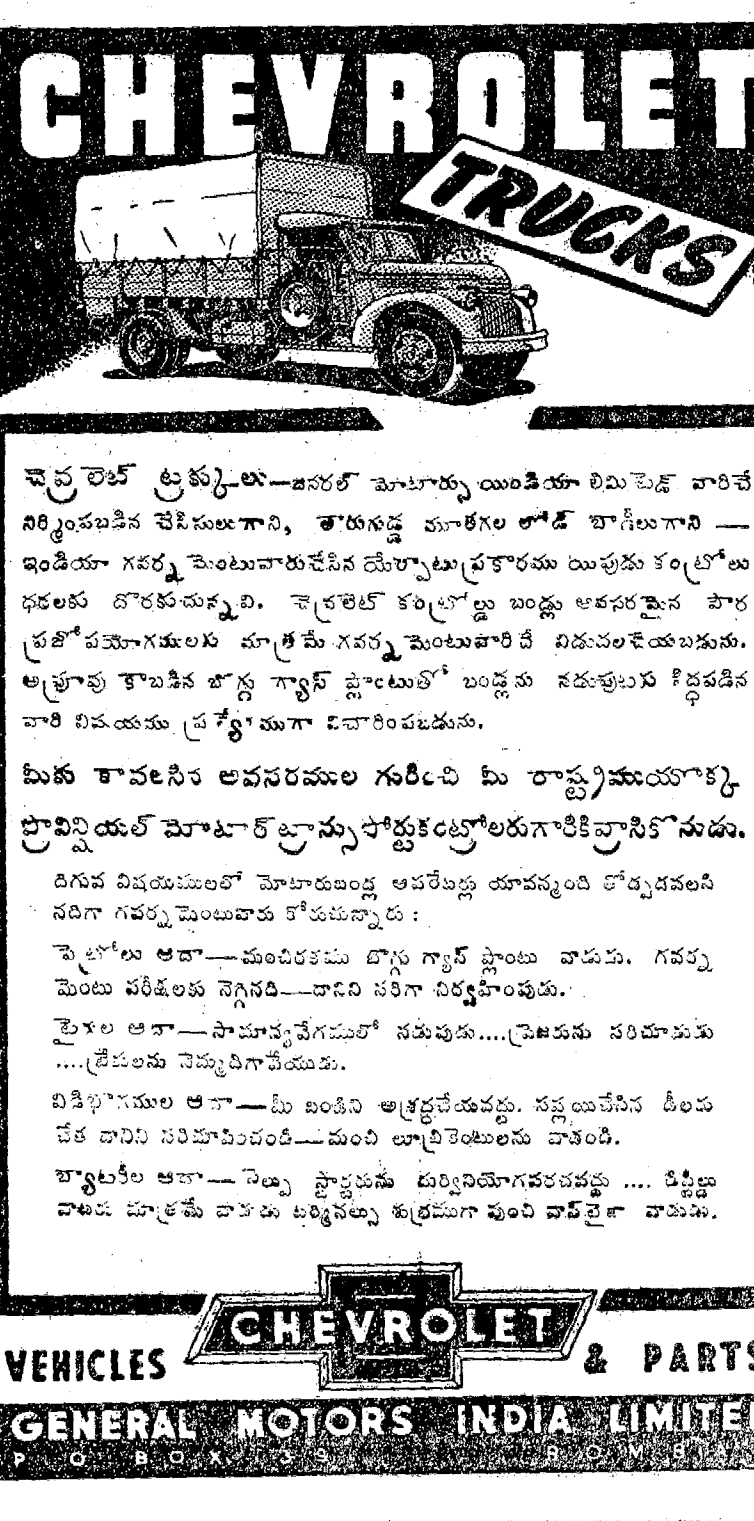 CHEVROLET
TRUCKS
చెవ్రలెట్ ట్రక్కులు—జనరల్ మోటార్సు యిండియా లిమిటెడ్ వారిచే
నిర్మింపబడిన చేసిసులుగాని, తారుగుడ్డ మూతగల లోడ్ బాడీలుగాని —
ఇండియా గవర్న మెంటువారుచేసిన యేర్పాటు ప్రకారము యిపుడు కంట్రోలు
ధరలకు దొరకుచున్నవి. చెవ్రలెట్ కంట్రోల్డు బండ్లు అవసరమైన పౌర
ప్రజోపయోగములకు మాత్రమే గవర్న మెంటువారిచే విడుదలచేయబడును.
అప్రూవు కాబడిన బొగ్గు గ్యాస్ ప్లాంటుతో బండ్లను నడుపుటకు సిద్ధపడిన
వారి విషయము ప్రత్యేముగా విచారింపబడును.
మీకు కావలసిన అవసరముల గురించి మీ రాష్ట్రముయొక్క
ప్రొవిన్షియల్ మోటార్ ట్రాన్సుపోర్టుకంట్రోలరుగారికివ్రాసికొనుడు.
దిగువ విషయములలో మోటారుబండ్ల ఆపరేటర్లు యావన్మంది తోడ్పడవలసి
నదిగా గవర్న మెంటువారు కోరుచున్నారు :
పెట్రోలు ఆదా—మంచిరకము బొగ్గు గ్యాస్ ప్లాంటు వాడుడు. గవర్న
మెంటు పరీక్షలకు నెగ్గినది—దానిని సరిగా నిర్వహింపుడు.
టైరుల ఆదా—సామాన్యవేగములో నడుపుడు....ప్రెజరును సరిచూడుడు
....బ్రేకులను నెమ్మదిగావేయుడు.
విడిభాగముల ఆదా—మీ బండిని అశ్రద్ధచేయవద్దు. సప్లయిచేసిన డీలరు
చేత దానిని సరిచూపించండి—మంచి లూబ్రికెంటులను వాడండి.
బ్యాటరీల ఆదా—సెల్ఫు స్టార్టరును దుర్వినియోగపరచవద్దు .... డిస్టిల్డు
వాటరు మాత్రమే వాడుడు టర్మినల్సు శుభ్రముగా వుంచి వాస్‌లైనా వాడుడు.
CHEVROLET
VEHICLES & PARTS
GENERAL MOTORS INDIA LIMITED
P O BOX 39 BOMBAY